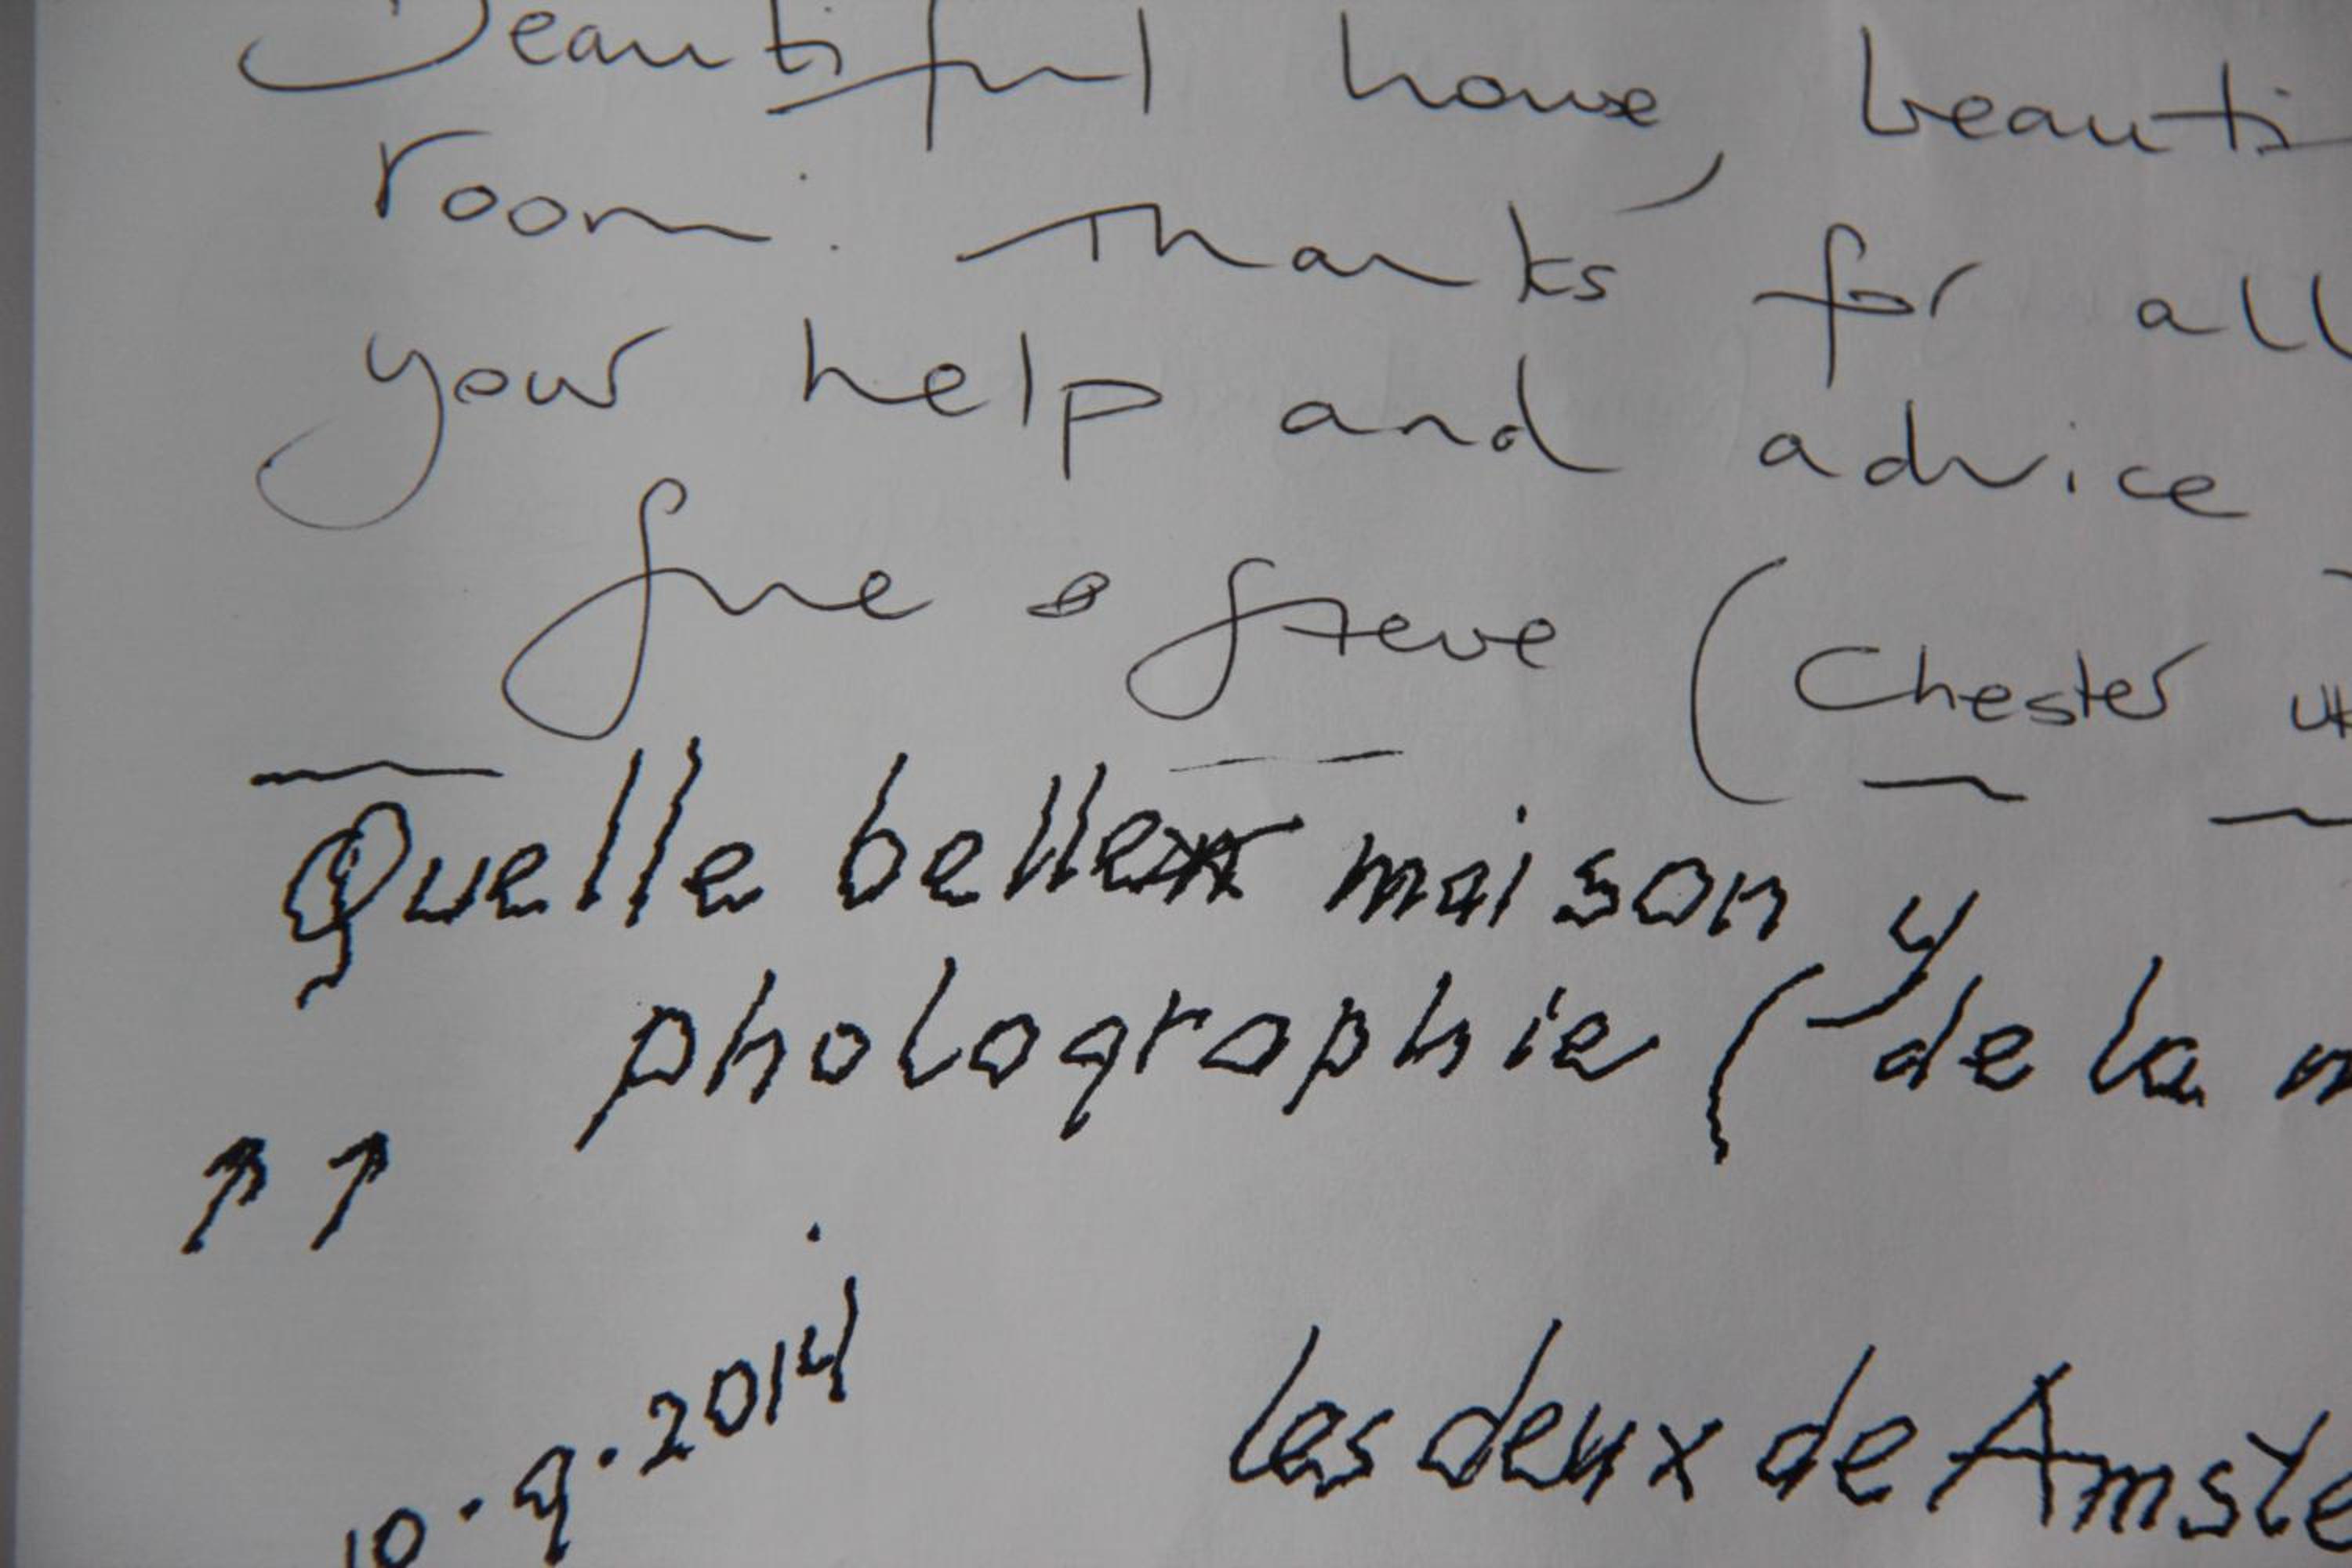 Beautiful house, beauti
room. Thanks for all
your help and advice
Sue & Steve (Chester UK
Quelle belle maison, y
photographie (de la m
10.9.2014
les deux de Amste